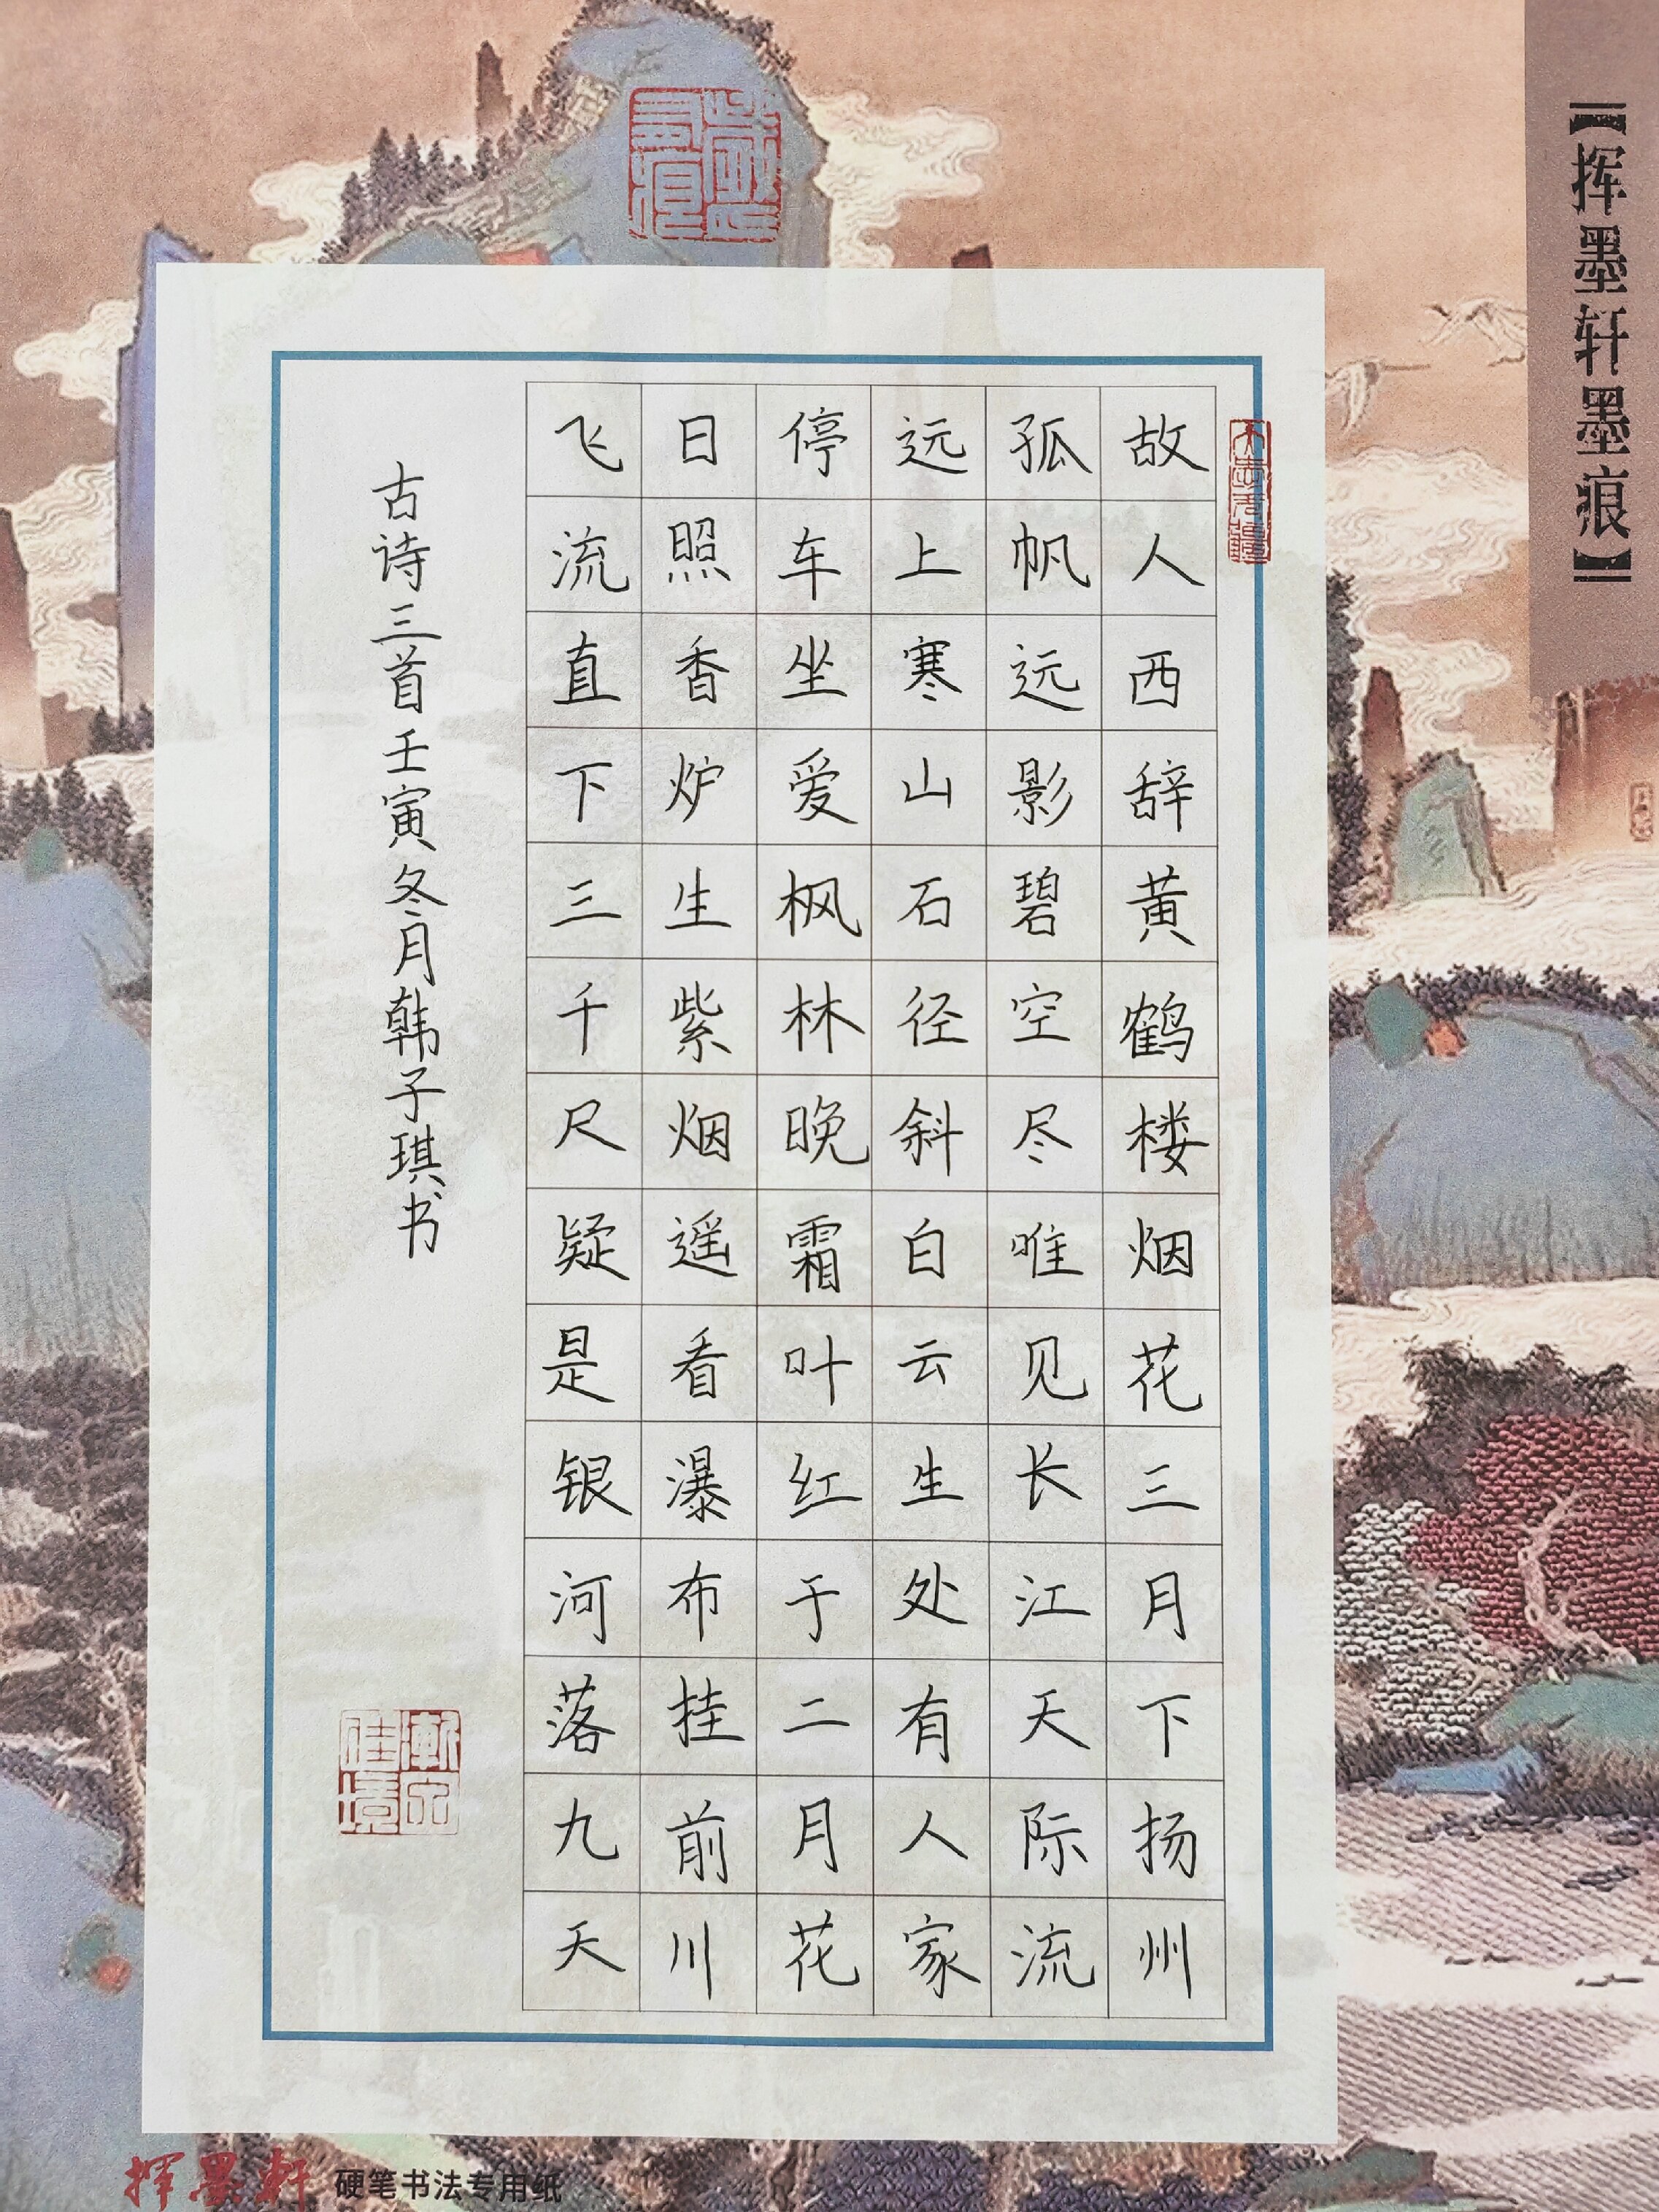 【挥墨轩墨痕】
故人西辞黄鹤楼烟花三月下扬州
孤帆远影碧空尽唯见长江天际流
远上寒山石径斜白云生处有人家
停车坐爱枫林晚霜叶红于二月花
日照香炉生紫烟遥看瀑布挂前川
飞流直下三千尺疑是银河落九天
古诗三首壬寅冬月韩子琪书
挥墨軒 硬笔书法专用纸